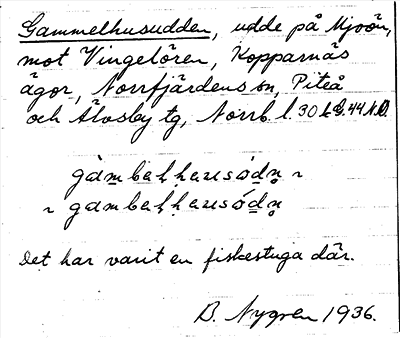 Gammelhusudden, udde på Mjoön,
mot Vingelören, Kopparnäs
ägor, Norrfjärdens sn, Piteå
och Älvsby tg, Norrb. l. 30
~
~
Det har varit en fiskestuga där.
B. Nygren 1936.